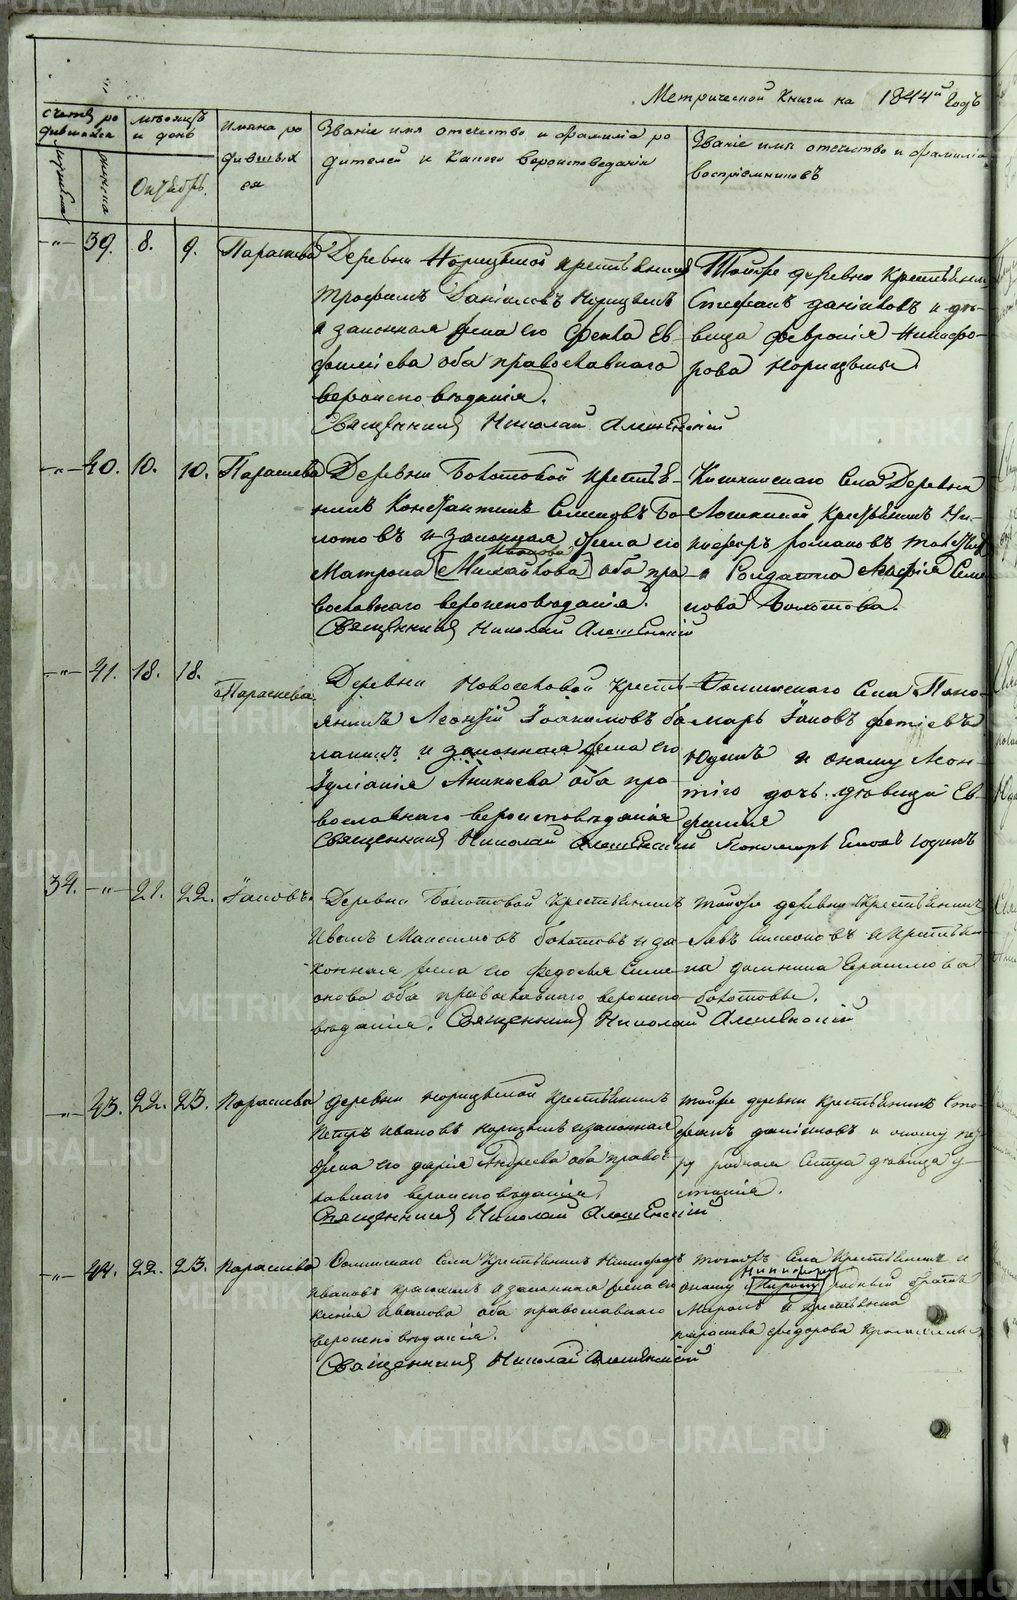 METRIKI.GASO-URAL.RU
Метрической Книги на 1844й Годъ
Счетъ ро
дившихся
мужеска
женска
мѣсяцъ
и день
Октябрь.
Имяна ро
дившых
ся
Званіе имя отечество и фамилія ро
дителей и Какого вероисповеданія
Званіе имя отечество и фамилія
воспріемниковъ
-"- 39. 8. 9. Параскева
Деревни Норицыной крестьянинъ
Трофимъ Даніиловъ Норицынъ
и законная жена его Фекла Ев-
фиміева оба православнаго
вероисповѣданія.
Священникъ Николай
Тойже деревни Крестьянинъ
Стефанъ Даніиловъ и дѣ-
вица Феврония Никифо-
рова Норицыны
-"- 40. 10. 10. Параскева
Деревни Болотовой Крестья-
нинъ Константинъ Семеновъ Бо-
лотовъ и Законная жена его
Иванова
Матрона [Михайлова] оба пра-
вославнаго вероисповѣданія.
Священникъ Николай
Села Деревни
Крестьянинъ Ни-
кифоръ Романовъ
и Солдатка Семе
нова Болотова.
-"- 41. 18. 18. Параскева
Деревни Новоселовой Кресть-
янинъ Леонтій Іоакимовъ
и законная жена его
Іуліанія Аникиева оба пра
вославнаго вероисповѣданія
Священникъ Николай
Села Поно-
марь Іаковъ Фотіевъ
Юдинъ и оному Леон-
тію дочь дѣвица Ев-
фимія
Пономарь Іаковъ Юдинъ
39. -"- 21. 22. Іаковъ
Деревни Болотовой Крестьянинъ
Иванъ Максимовъ Болотовъ и за
конная жена его Федосья Симе
онова оба православнаго вероиспо
вѣданія. Священникъ Николай
тойже деревни Крестьянинъ
Симеоновъ и Крестьян
ка Домника Герасимова
Болотовы.
-"- 43. 22. 23. Параскева
деревни Норицыной Крестьянинъ
Петръ Ивановъ Норицынъ и законная
жена его Дарія Андреева оба правос-
лавнаго вероисповѣданія
Священникъ Николай
тойже деревни Крестьянинъ Сте-
фанъ Даніиловъ и оному Пет-
ру родная сестра дѣвица У-
стинія.
-"- 44. 22. 23. Параскева
Села Крестьянинъ Никифоръ
Ивановъ и законная жена его
Иванова оба православнаго
вероисповѣданія.
Священникъ Николай
тогожъ Села Крестьянинъ и
Никифору
оному родный братъ
Миронъ и Крестьянка
Параскева Федорова